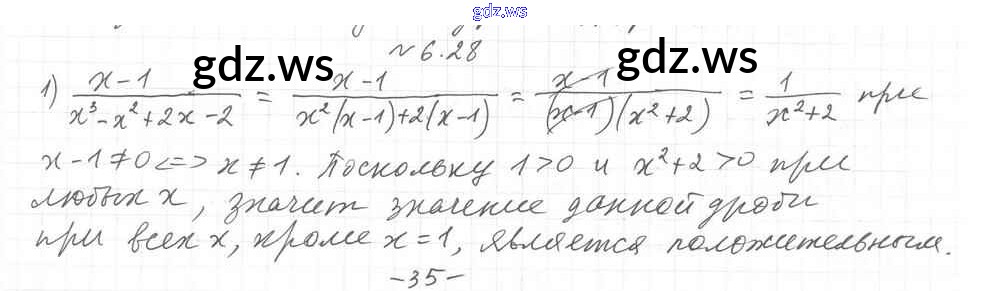 gdz.ws
№ 6.28
1) x-1 / x³-x²+2x-2 = x-1 / x²(x-1)+2(x-1) = x-1 / (x-1)(x²+2) = 1 / x²+2 при
gdz.ws gdz.ws gdz.ws
x-1≠0 <=> x≠1. Поскольку 1>0 и x²+2>0 при
любых x, значит значение данной дроби
при всех x, кроме x=1, является положительным.
-35-